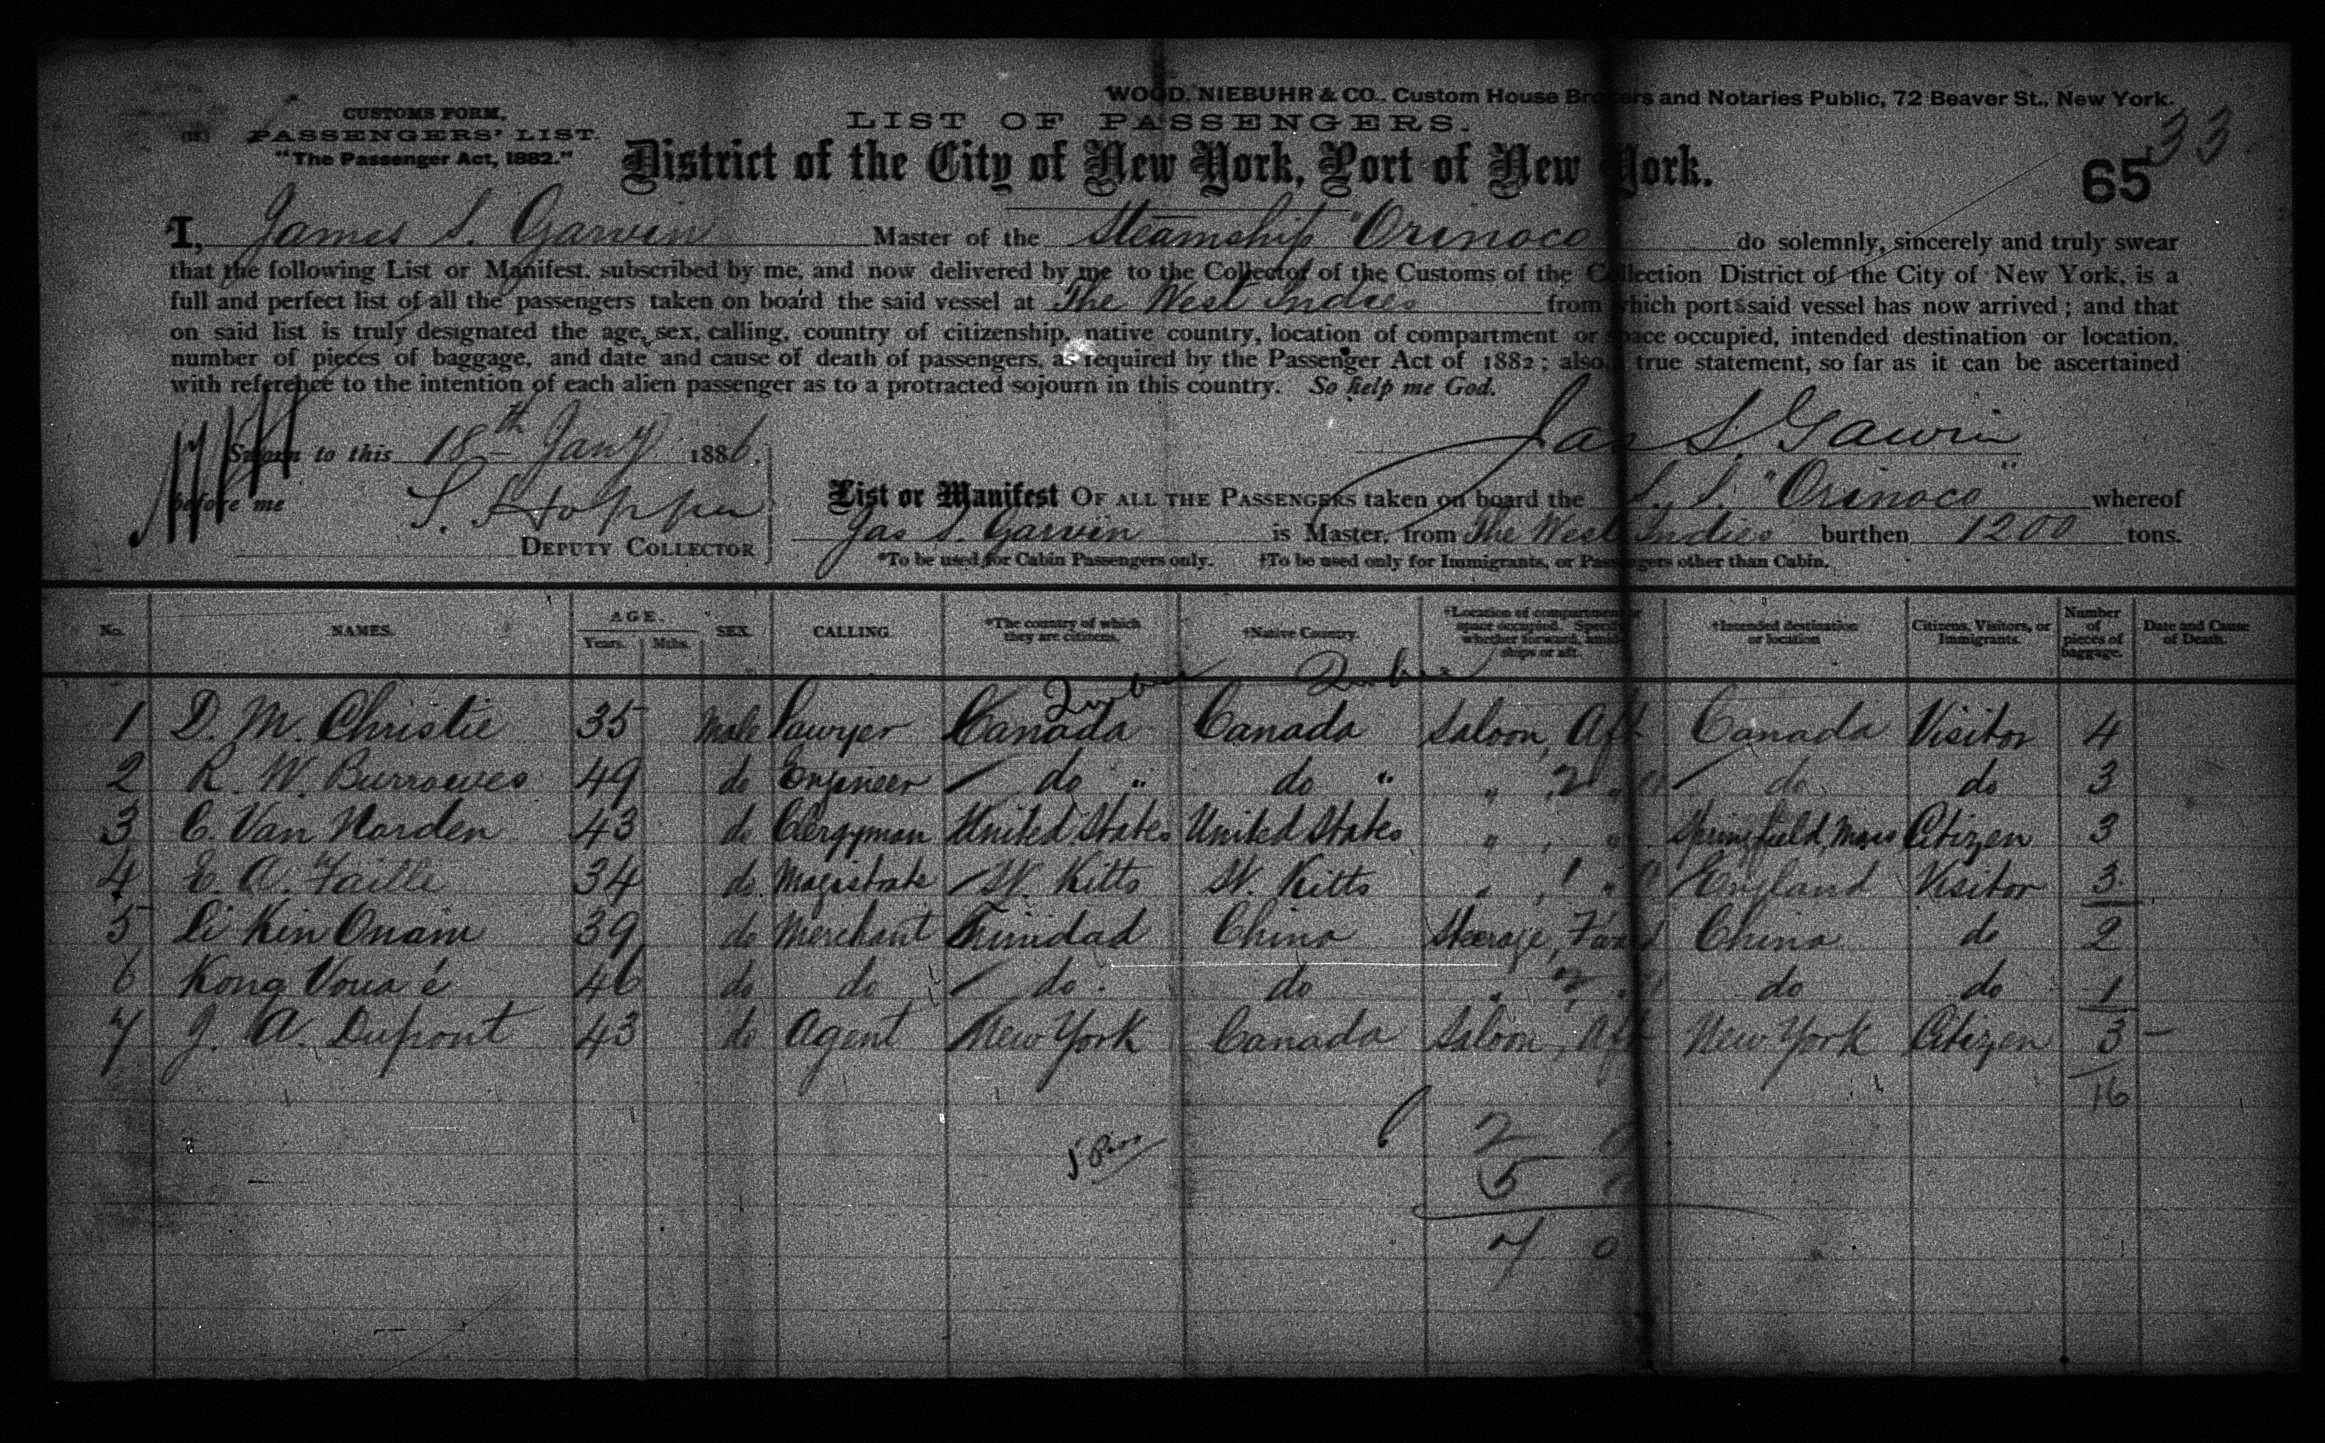 WOOD, NIEBUHR & CO., Custom House Brokers and Notaries Public, 72 Beaver St., New York.
CUSTOMS FORM,
PASSENGERS' LIST.
"The Passenger Act, 1882."
LIST OF PASSENGERS.
District of the City of New York, Port of New York.
65
33
I, James S. Garvin Master of the Steamship "Orinoco do solemnly, sincerely and truly swear
that the following List or Manifest, subscribed by me, and now delivered by me to the Collector of the Customs of the Collection District of the City of New York, is a
full and perfect list of all the passengers taken on board the said vessel at The West Indies from which ports said vessel has now arrived; and that
on said list is truly designated the age, sex, calling, country of citizenship, native country, location of compartment or space occupied, intended destination or location,
number of pieces of baggage, and date and cause of death of passengers, as required by the Passenger Act of 1882; also a true statement, so far as it can be ascertained
with reference to the intention of each alien passenger as to a protracted sojourn in this country. So help me God.
Sworn to this 18th Jany 1886.
Jas S. Garvin
before me S. Hopper
DEPUTY COLLECTOR
List or Manifest OF ALL THE PASSENGERS taken on board the S. S. "Orinoco" whereof
Jas S. Garvin is Master, from The West Indies burthen 1200 tons.
*To be used for Cabin Passengers only. †To be used only for Immigrants, or Passengers other than Cabin.
No. NAMES. AGE. Years. Mths. SEX. CALLING. *The country of which they are citizens. †Native Country. †Location of compartment or space occupied. Specify whether forward, amidships or aft. †Intended destination or location Citizens, Visitors, or Immigrants. Number of pieces of baggage. Date and Cause of Death.
Quebec Quebec
1 D. M. Christie 35 Male Lawyer Canada Canada Saloon, Aft Canada Visitor 4
2 R. W. Burrowes 49 do Engineer do " do " " 2 " do do 3
3 C. Van Norden 43 do Clergyman United States United States " , " Springfield, Mass Citizen 3
4 E. A. Faille 34 do Magistrate St. Kitts St. Kitts " , 1 " England Visitor 3
5 Li Kin Onam 39 do Merchant Trinidad China Steerage, For'd China do 2
6 Kong Voua é 46 do do do do " 2 " do do 1
7 J. A. Dupont 43 do Agent New York Canada Saloon, Aft New York Citizen 3 —
16
2
5
7 0